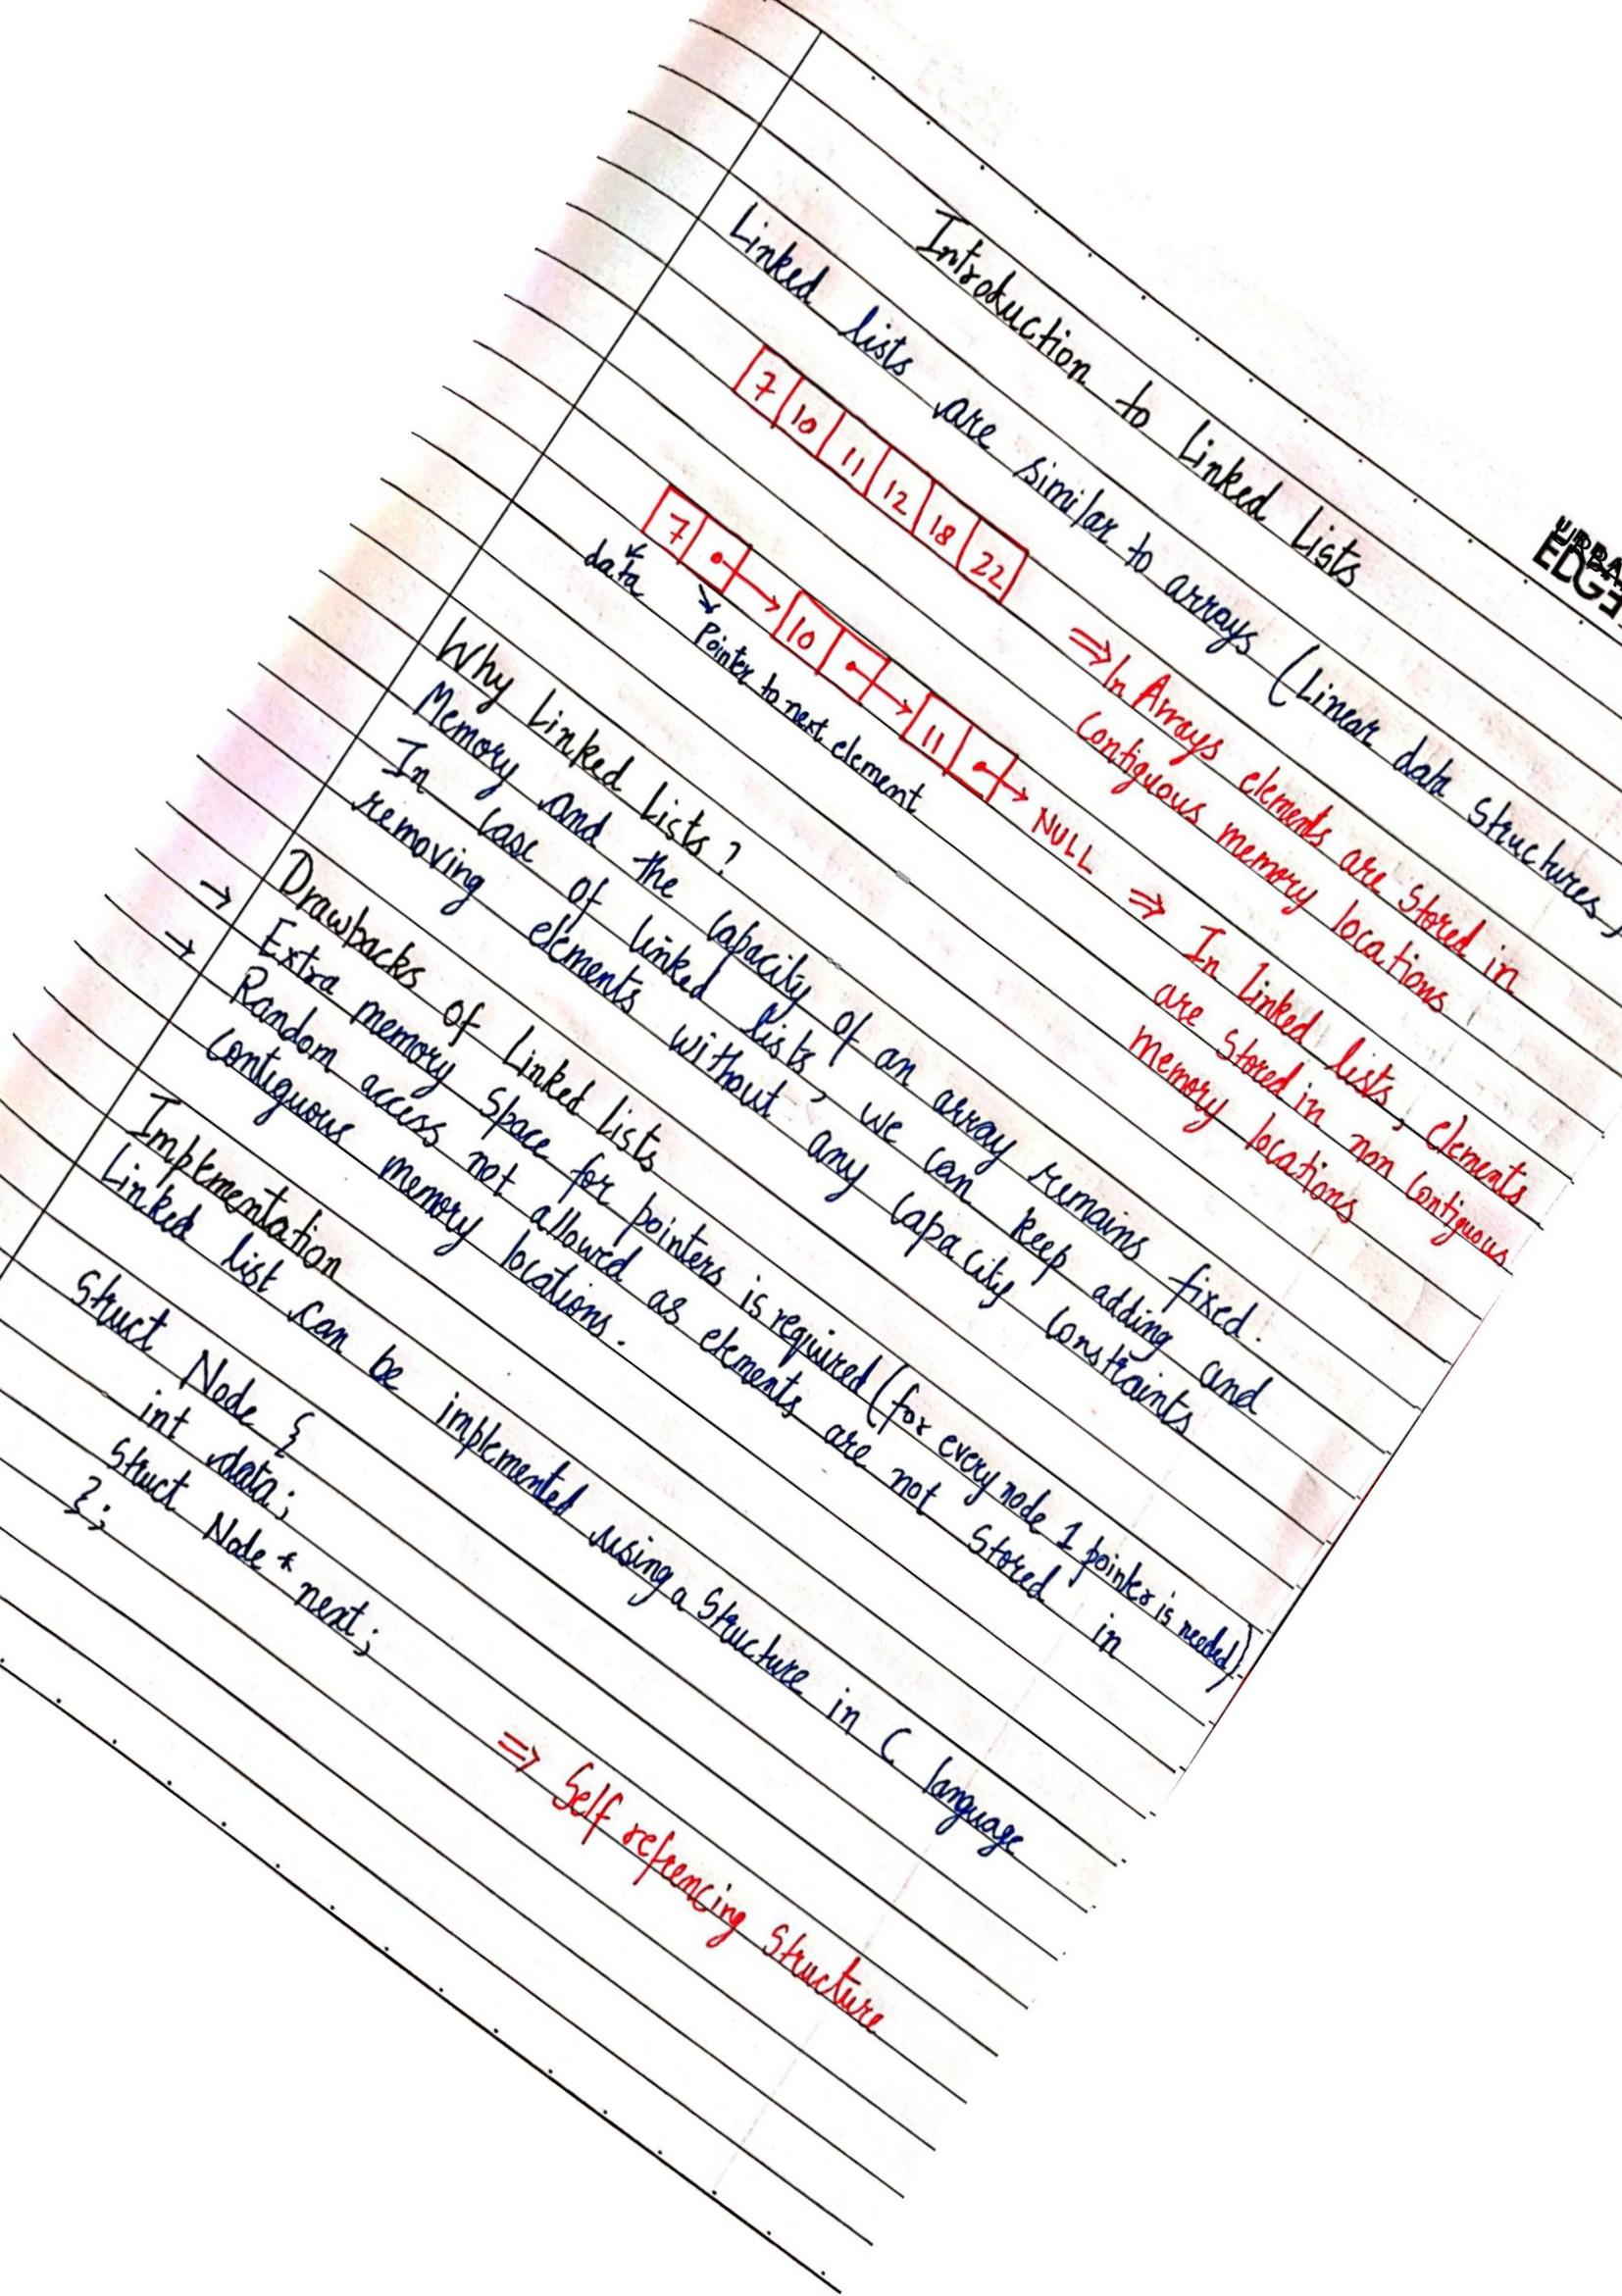 URBAN
EDGE
Introduction to Linked Lists
Linked lists are similar to arrays (Linear data Structures)
7 10 11 12 18 22 ⇒ In Arrays elements are Stored in
Contiguous memory locations
7 → 10 → 11 → NULL ⇒ In linked lists, elements
are Stored in non Contiguous
memory locations
data
Pointer to next element
Why Linked Lists?
Memory and the capacity of an array remains fixed.
In case of linked lists, we can keep adding and
removing elements without any capacity constraints
Drawbacks of Linked Lists
→ Extra memory space for pointers is required (for every node 1 pointer is needed)
→ Random access not allowed as elements are not Stored in
contiguous memory locations.
Implementation
Linked list can be implemented using a Structure in C language
Struct Node {
int data;
Struct Node * next;
};
⇒ Self refrencing Structure